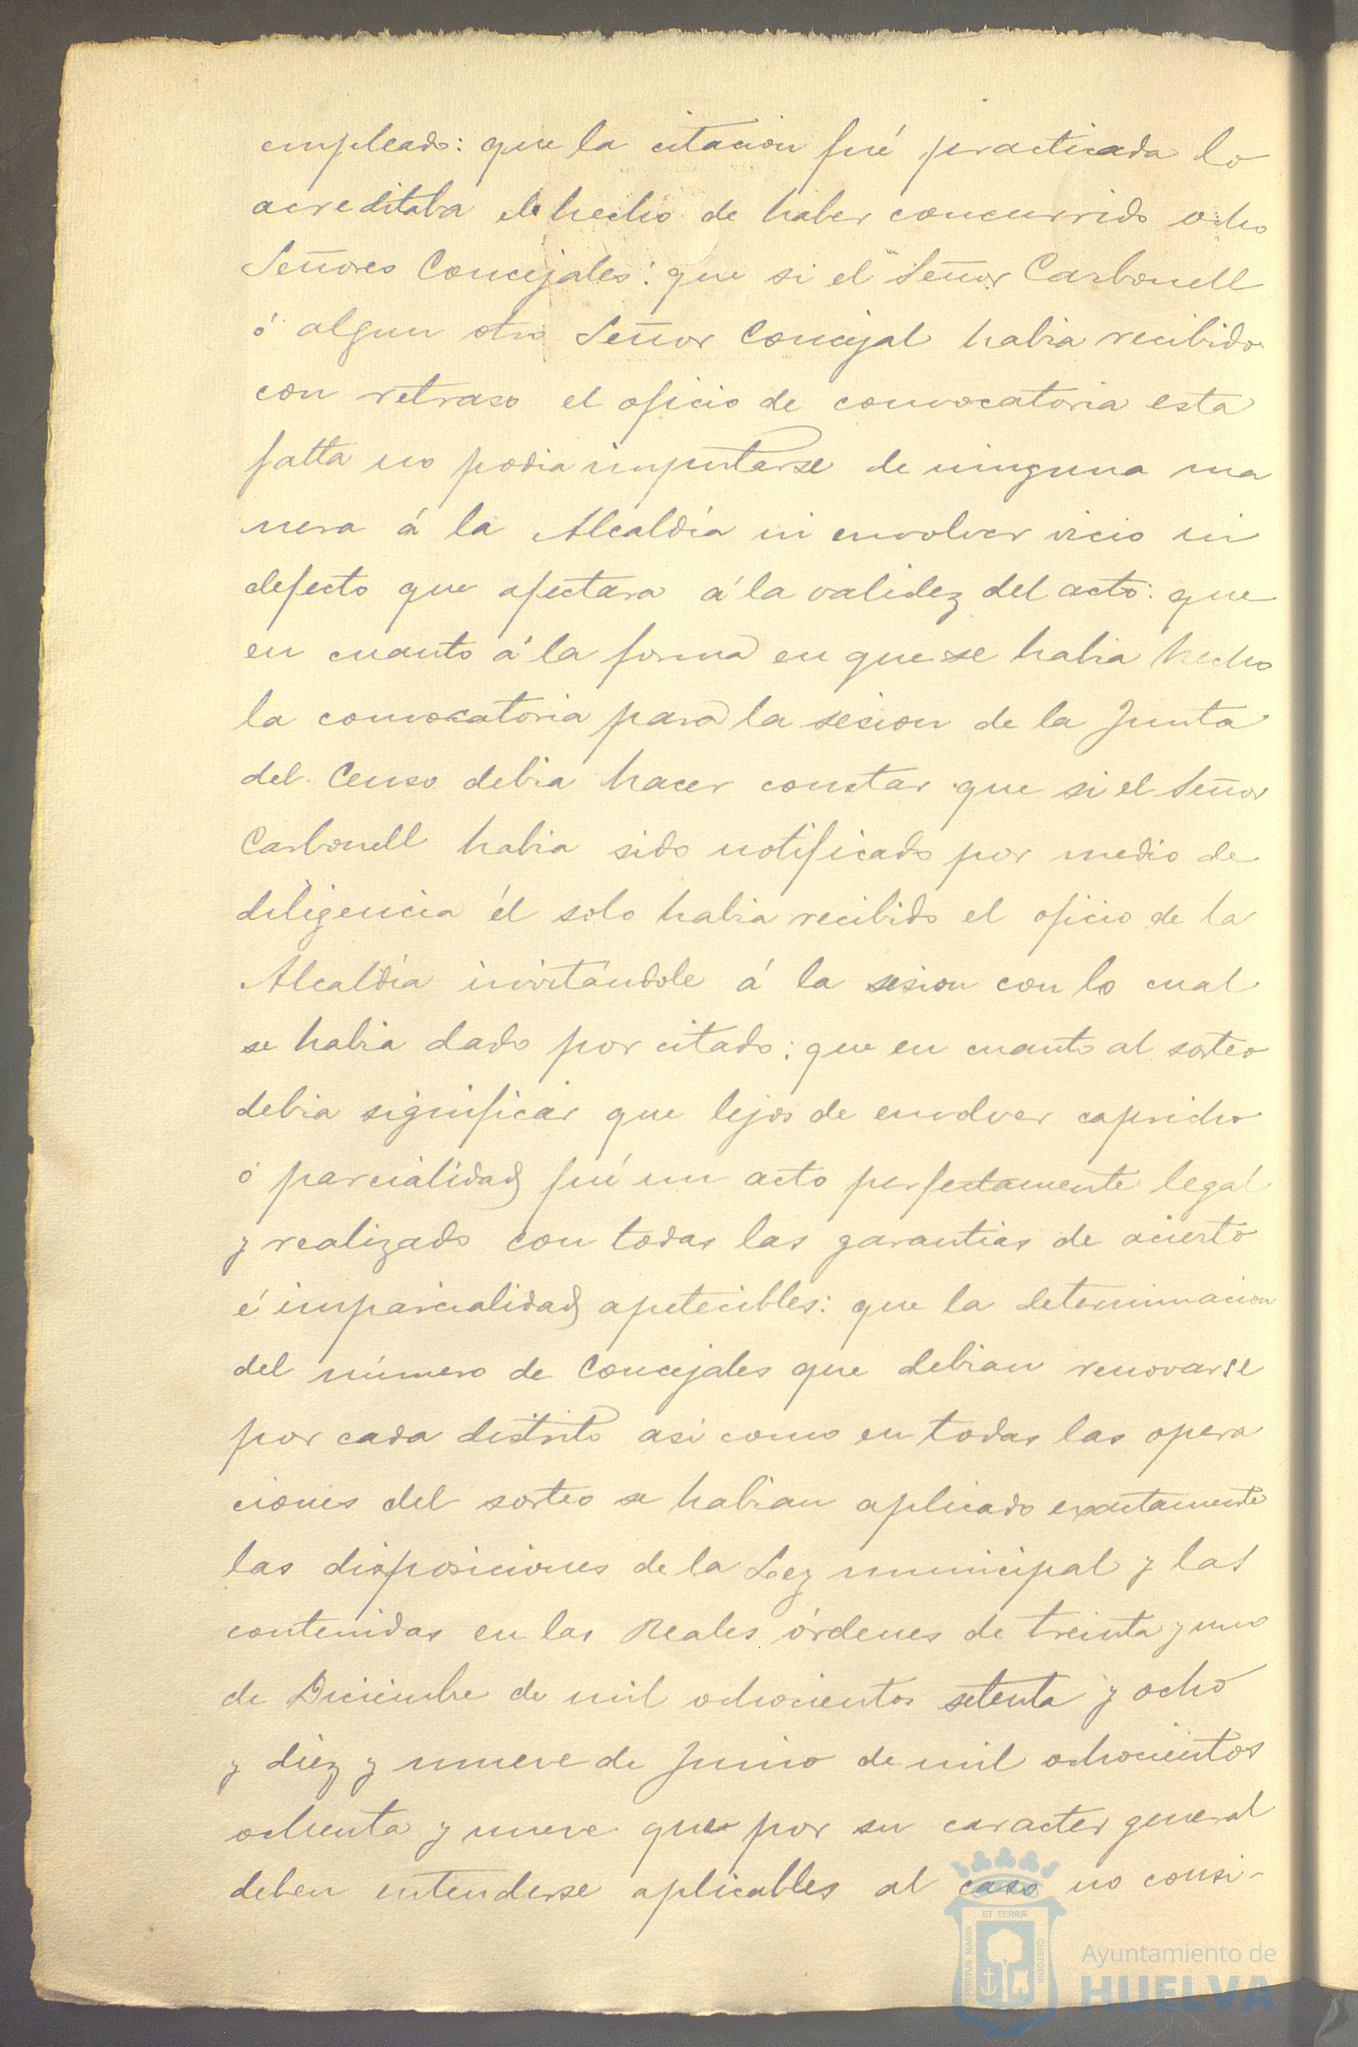 empleado: que la citacion fué practicada lo
acreditaba el hecho de haber concurrido ocho
Señores Concejales: que si el Señor Carbonell
ó algun otro Señor Concejal habia recibido
con retraso el oficio de convocatoria esta
falta no podia imputarse de ninguna ma
nera á la Alcaldía ni envolver vicio ni
defecto que afectara á la validez del acto: que
en cuanto á la forma en que se habia hecho
la convocatoria para la sesion de la Junta
del Censo debia hacer constar que si el Señor
Carbonell habia sido notificado por medio de
diligencia él solo habia recibido el oficio de la
Alcaldía invitándole á la sesion con lo cual
se habia dado por citado: que en cuanto al sorteo
debia significar que lejos de envolver capricho
ó parcialidad fué un acto perfectamente legal
y realizado con todas las garantias de acierto
é imparcialidad apetecibles: que la determinacion
del número de Concejales que debian renovarse
por cada distrito asi como en todas las opera
ciones del sorteo se habian aplicado exactamente
las disposiciones de la Ley municipal y las
contenidas en las Reales órdenes de treinta y uno
de Diciembre de mil ochocientos setenta y ocho
y diez y nueve de Junio de mil ochocientos
ochenta y nueve que por su caracter general
deben entenderse aplicables al caso no consi-
PORTUS MARIS
ET TERRÆ
CUSTODIA
Ayuntamiento de
HUELVA